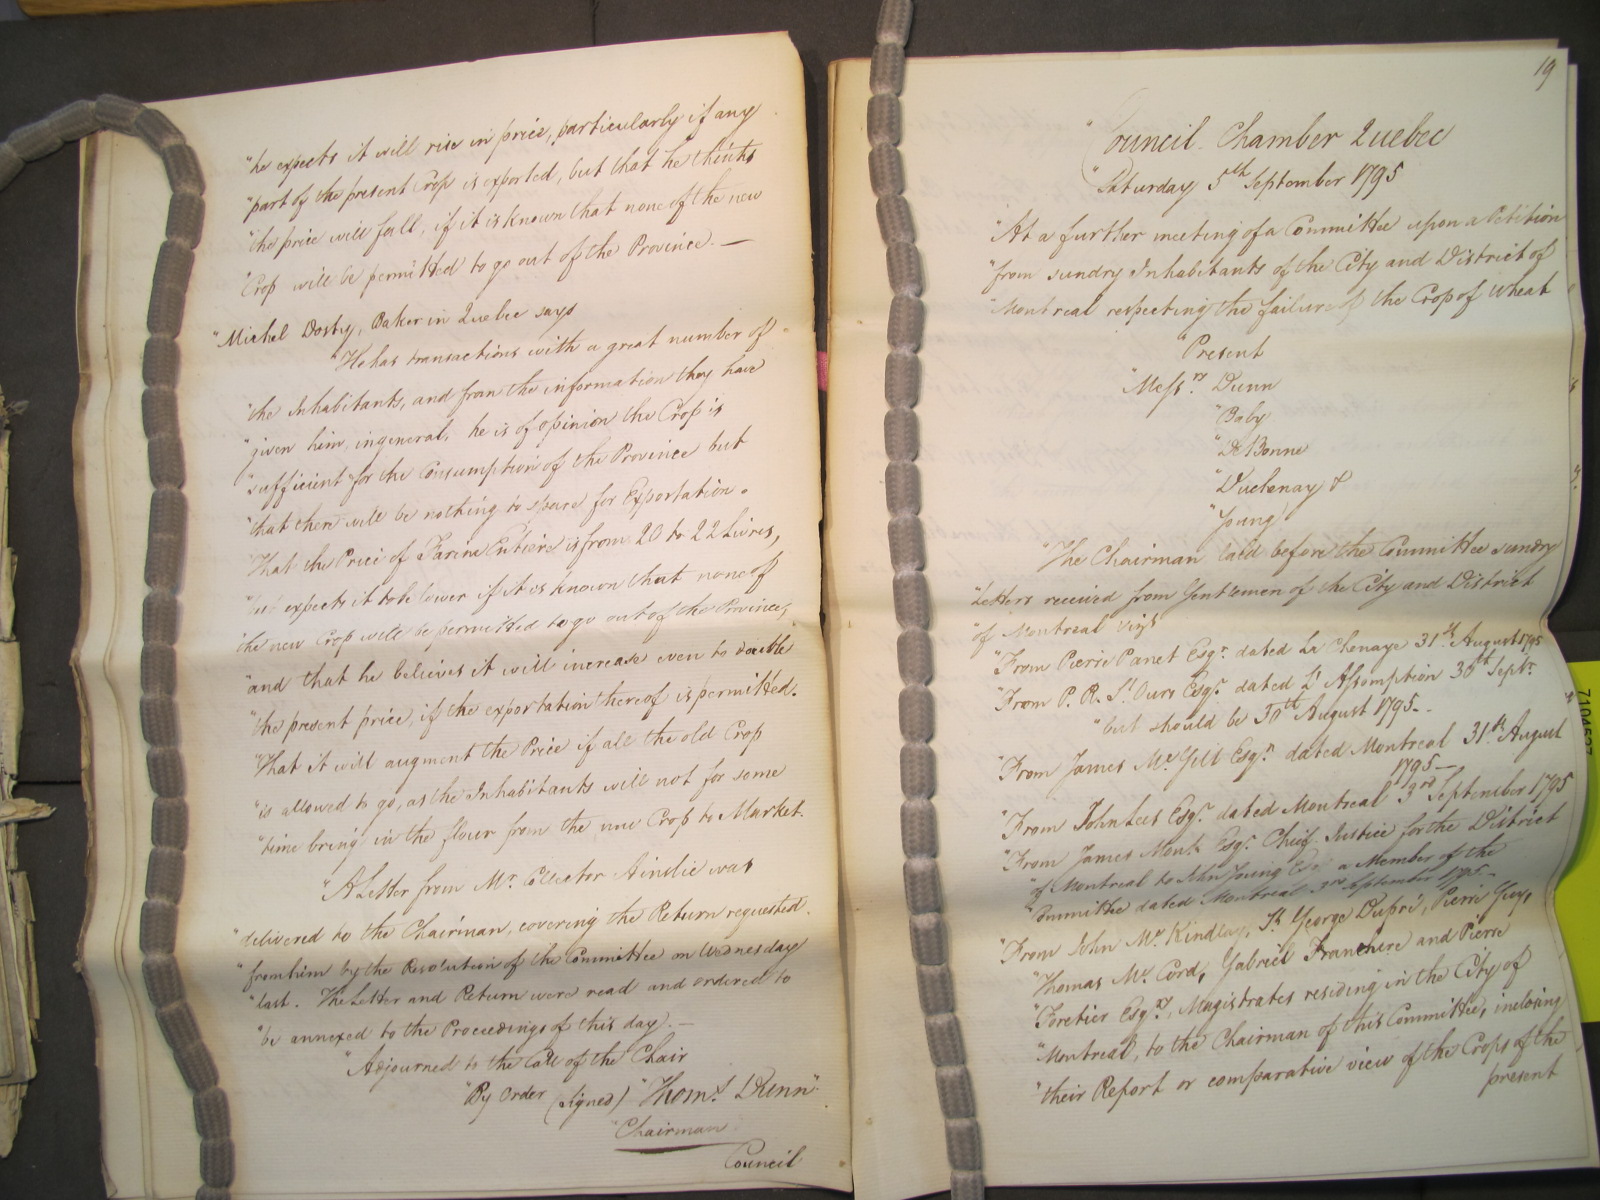 "he expects it will rise in price, particularly if any
"part of the present Crop is exported, but that he thinks
"the price will fall, if it is known that none of the new
"Crop will be permitted to go out of the Province. —
"Michel Dosty, Baker in Quebec says
"He has transactions with a great number of
"the Inhabitants, and from the information they have
"given him, in general, he is of opinion the Crop is
"sufficient for the Consumption of the Province but
"that there will be nothing to spare for Exportation.
"That the Price of Farine Entiere is from 20 to 22 Livres,
"but expects it to be lower if it is known that none of
"the new Crop will be permitted to go out of the Province,
"and that he believes it will increase even to double
"the present price, if the exportation thereof is permitted.
"That it will augment the Price if all the old Crop
"is allowed to go, as the Inhabitants will not for some
"time bring in the flour from the new Crop to Market.
"A Letter from Mr. Collector Ainslie was
"delivered to the Chairman, covering the Return requested
"from him by the Resolution of the Committee on Wednesday
"last. The Letter and Return were read and ordered to
"be annexed to the Proceedings of this day. —
"Adjourned to the Call of the Chair
"By Order (signed) "Thoms. Dunn"
"Chairman
Council
19
"Council Chamber Quebec
"Saturday 5th September 1795
"At a further meeting of a Committee upon a Petition
"from sundry Inhabitants of the City and District of
"Montreal respecting the failure of the Crop of Wheat
"Present
"Messrs. Dunn
"Baby
"De Bonne
"Duchenay &
"Young
"The Chairman laid before the Committee sundry
"Letters received from Gentlemen of the City and District
"of Montreal vizt
"From Pierre Panet Esqr. dated La Chenaye 31st August 1795
"From P. R. St. Ours Esqr. dated L'Assomption 30th Septr.
"but should be 30th August 1795. -
"From James Mc. Gill Esqr. dated Montreal 31st August
1795 —
"From John Lees Esqr. dated Montreal 3rd September 1795
"From James Monk Esqr. Chief Justice for the District
"of Montreal to John Young Esqr. a Member of the
"Committee dated Montreal 3rd September 1795. -
"From John Mc. Kindlay, St. George Dupré, Pierre Guy,
"Thomas Mc. Cord, Gabriel Franchere and Pierre
"Foretier Esqrs, Magistrates residing in the City of
"Montreal, to the Chairman of this Committee, inclosing
"their Report or comparative view of the Crops of the
present